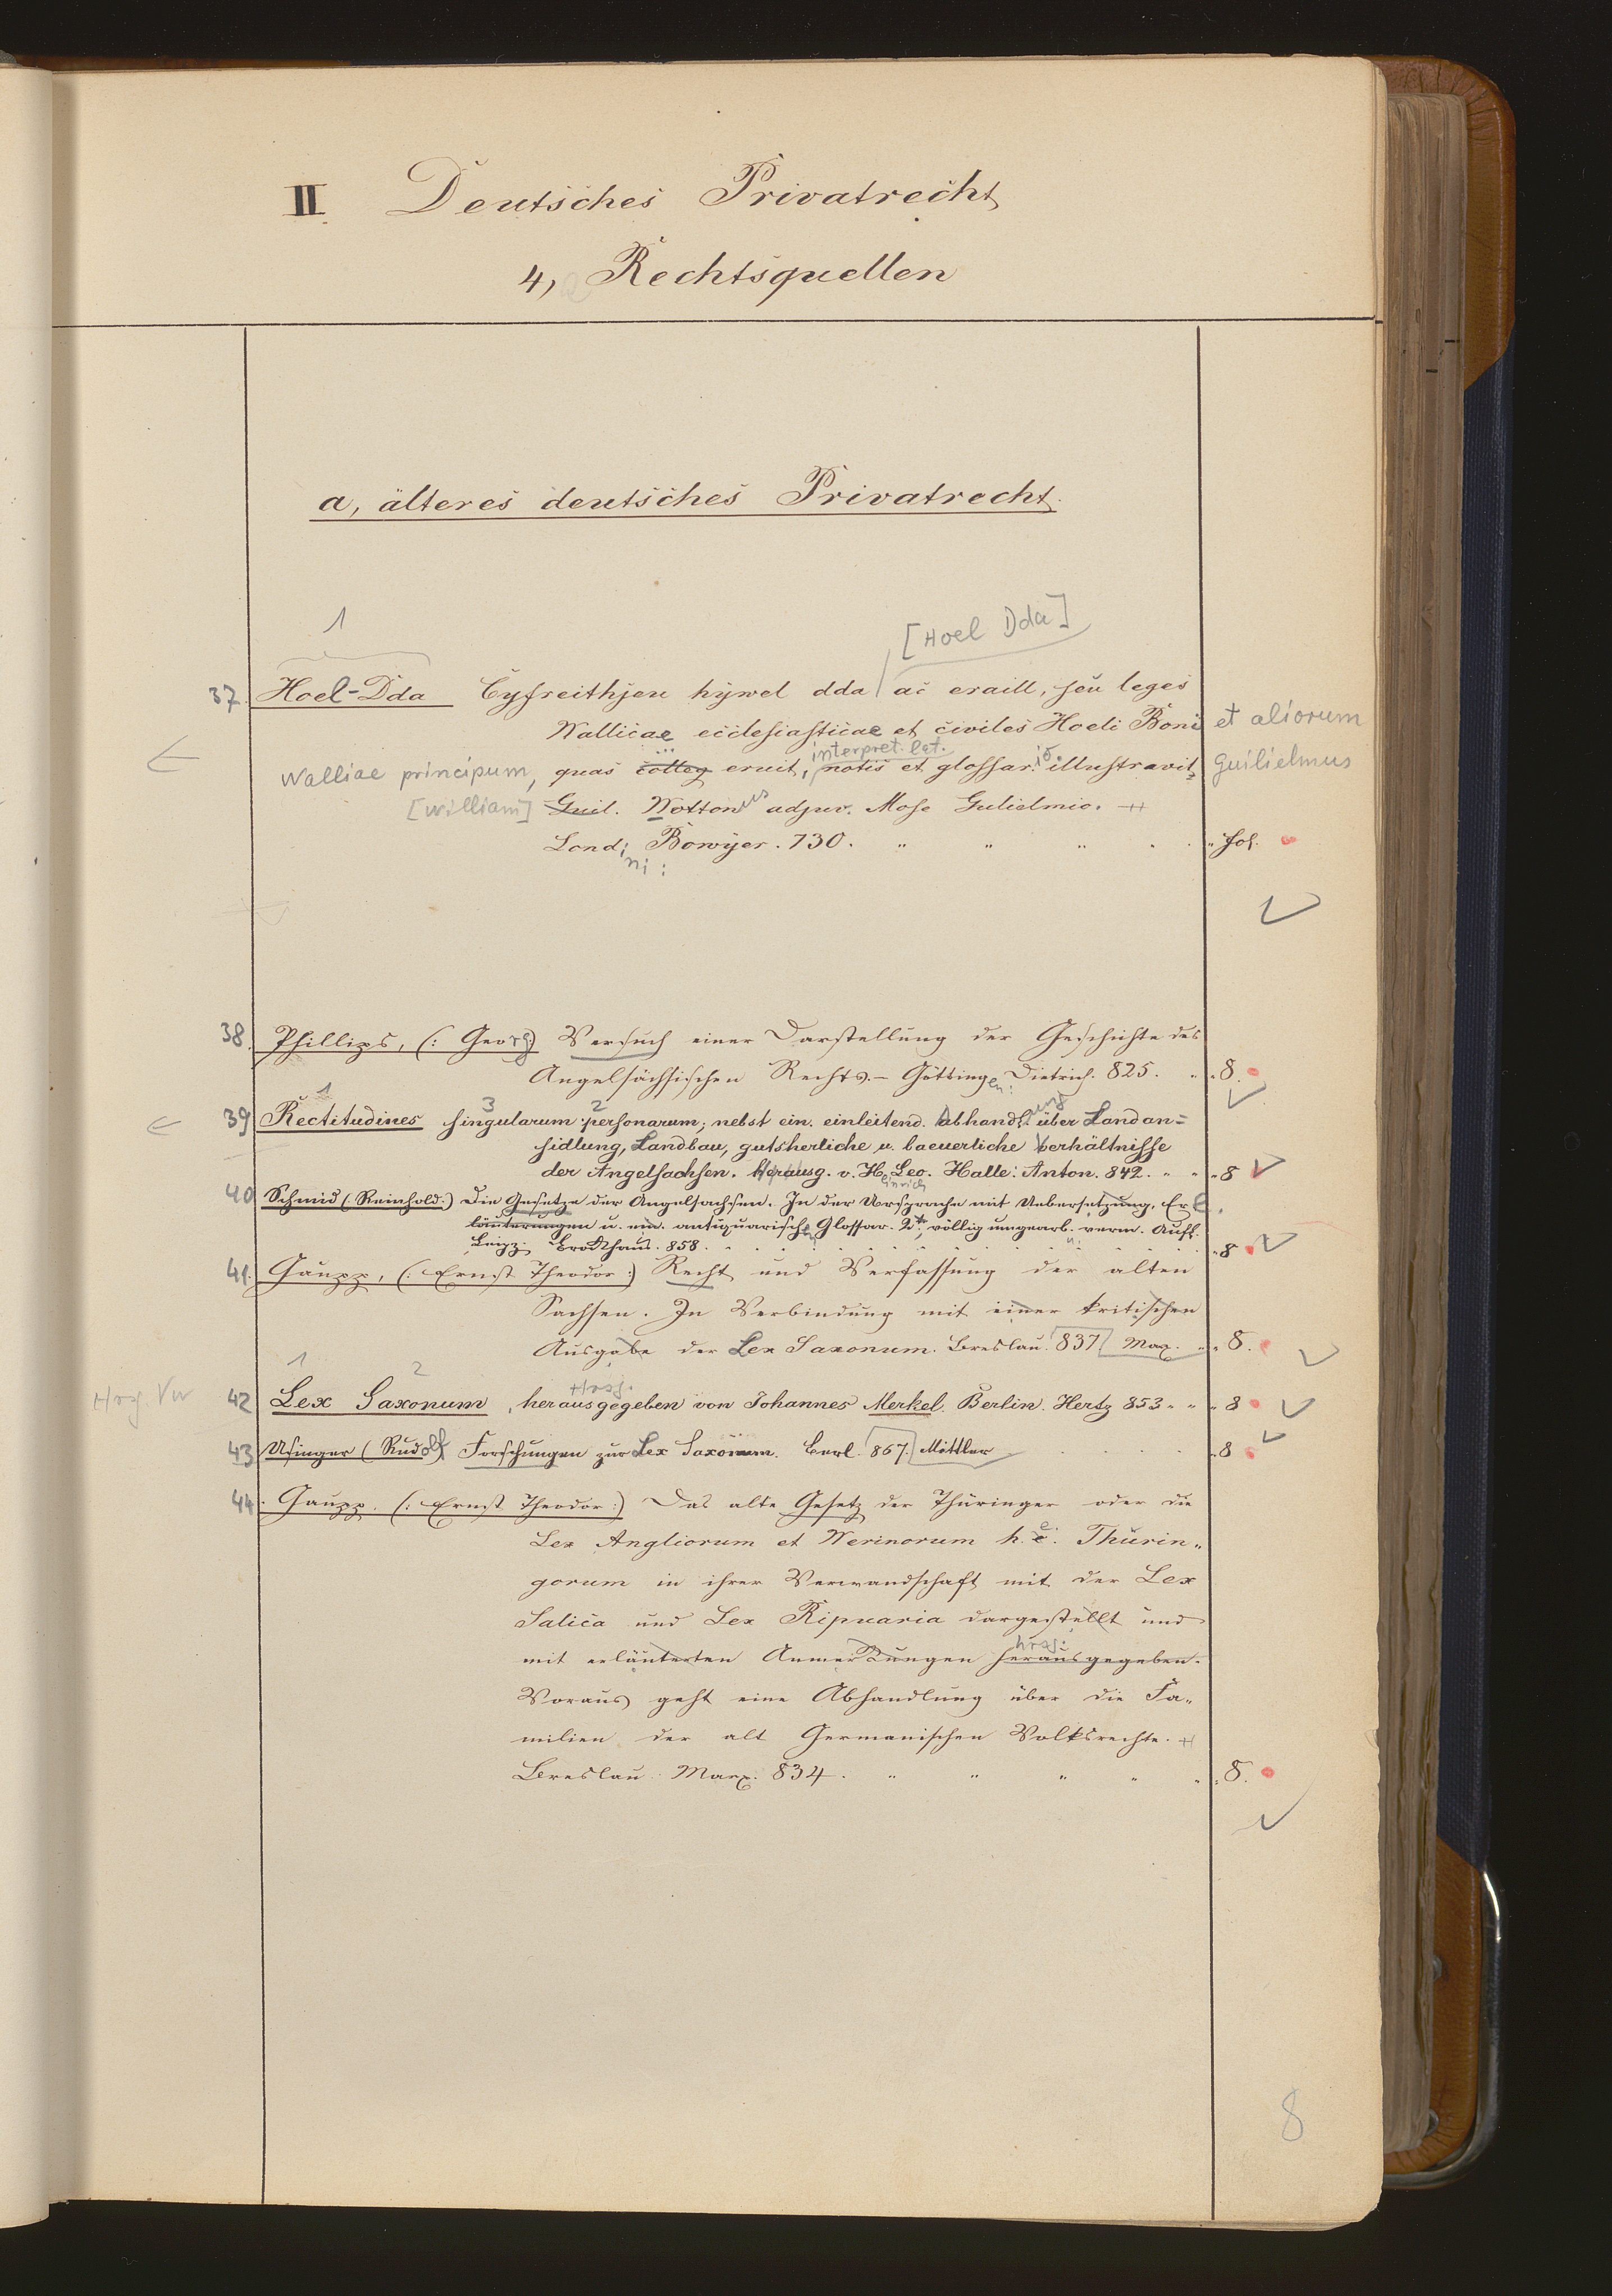 II. Deutsches Privatrecht
4, Rechtsquellen
a, älteres deutsches Privatrecht.
1
[Hoel Dda]
37. Hoel-Dda Cyfreithjeu hywel dda ac eraill, seu leges
Wallicae ecclesiasticae et civiles Hoeli Boni et aliorum
interpret. lat.
Walliae principum, quas colleg eruit, notis et glossar. io illustravit, Guilielmus
[William] Guil. Wottonus adjuv. Mose Gulielmio.
Londi Bowyer. 730. fol.
ni:
38. Phillips, (: Georg:) Versuch einer Darstellung der Geschichte des
Angelsächsischen Rechts. – Göttingen: Dietrich. 825. 8.
1 3 2 ung
39 Rectitudines singularum personarum; nebst ein. einleitend. Abhandl. über Landan=
sidlung, Landbau, gutsherliche u. baeuerliche Verhältnisse
der Angelsachsen. Herausg. v. H. Leo. Halle: Anton. 842. 8
einrich
40 Schmid (Reinhold:) Die Gesetze der Angelsachsen. In der Ursprache mit Uebersetzung, Er
läuterungen u. ein. antiquarisch Glossar. 2te, völlig umgearb. verm. Aufl.
Leipz. Brockhaus. 858. 8
41. Gaupp, (: Ernst Theodor:) Recht und Verfassung der alten
Sachsen. In Verbindung mit einer kritischen
Ausgabe der Lex Saxonum. Breslau. 837 Max. 8.
1 2
Hrsg.
Hrsg. Vw 42 Lex Saxonum, herausgegeben von Johannes Merkel. Berlin. Hertz 853 8
43 Usinger (Rudolf) Forschungen zur Lex Saxonum. Berl. 867. Mittler 8
44. Gaupp. (: Ernst Theodor:) Das alte Gesetz der Thüringer oder die
Lex Angliorum et Werinorum h. e. Thürin„
gorum in ihrer Verwandschaft mit der Lex
Salica und Lex Ripuaria dargestellt und
hrsg:
mit erläuterten Anmerkungen herausgegeben.
Voraus geht eine Abhandlung über die Fa„
milien der alt Germanischen Volksrechte.
Breslau. Max. 834. 8.
8